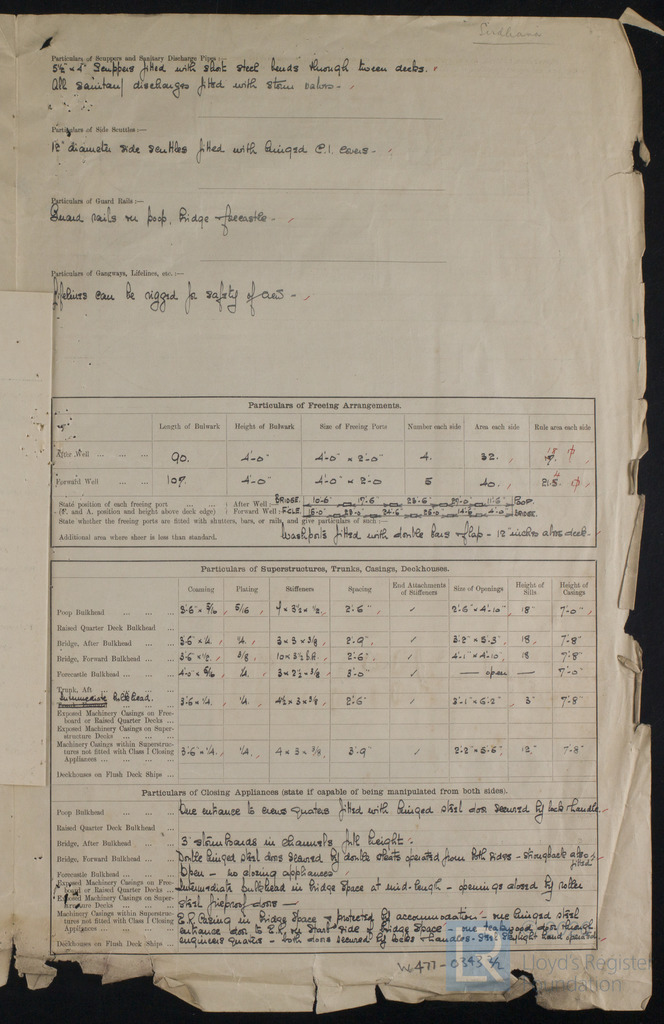 Sirdhana
Particulars of Scuppers and Sanitary Discharge Pipes :—
5½" x 4" Scuppers fitted with short steel bends through tween decks.
All sanitary discharges fitted with storm valves -
Particulars of Side Scuttles :—
12" diameter side scuttles fitted with hinged C.I. covers -
Particulars of Guard Rails :—
Guard rails on poop, bridge & forecastle -
Particulars of Gangways, Lifelines, etc. :—
Lifelines can be rigged for safety of crew -
Particulars of Freeing Arrangements.
Length of Bulwark Height of Bulwark Size of Freeing Ports Number each side Area each side Rule area each side
After Well ... ... ... 90. 4'-0" 4'-0" x 2'-0" 4. 32. 18
Forward Well ... ... 107. 4'-0" 4'-0" x 2'-0 5 40. 21.5 4
State position of each freeing port ... ... } After Well : BRIDGE. 10'-6" 17'-6" 23'-6" 11'-6" POOP.
(F. and A. position and height above deck edge) } Forward Well : F'CLE. 24'-6" BRIDGE.
State whether the freeing ports are fitted with shutters, bars, or rails, and give particulars of such :—
Additional area where sheer is less than standard. Washports fitted with double bars & flap - 12 inches above deck -
Particulars of Superstructures, Trunks, Casings, Deckhouses.
Coaming Plating Stiffeners Spacing End Attachments of Stiffeners Size of Openings Height of Sills Height of Casings
Poop Bulkhead ... ... ... 3'-6" x 5/16 5/16 7 x 3½ x ½ 2'-6" 2'-6" x 4'-10" 18" 7'-0"
Raised Quarter Deck Bulkhead ...
Bridge, After Bulkhead ... ... 3'-6" x ¼ ¼ 3 x 3 x 3/8 2'-9" 3'-2" x 5'-3" 18 7'-8"
Bridge, Forward Bulkhead ... ... 3'-6 x ½ 3/8 10 x 3½ B.A. 2'-6" 4'-1" x 4'-10" 18 7'-8"
Forecastle Bulkhead ... ... 4'-0" x 5/16 ¼ 3 x 2½ x 3/8 3'-0" — open — 7'-0"
Trunk, Aft
Intermediate bulkhead. 3'-6 x ¼ ¼ 4½ x 3 x 3/8 2'-6" 3'-1" x 6'-2" 3" 7'-8"
Exposed Machinery Casings on Freeboard or Raised Quarter Decks ...
Exposed Machinery Casings on Superstructure Decks ... ... ...
Machinery Casings within Superstructures not fitted with Class I Closing Appliances ... ... ... 3'-6" x ¼ ¼ 4 x 3 x 3/8 3'-9" 2'-2" x 5'-6" 12" 7'-8"
Deckhouses on Flush Deck Ships ...
Particulars of Closing Appliances (state if capable of being manipulated from both sides).
Poop Bulkhead ... ... ... One entrance to crews quarters fitted with hinged steel door secured by lock & handle.
Raised Quarter Deck Bulkhead ...
Bridge, After Bulkhead ... ... 3" storm boards in channels full height -
Bridge, Forward Bulkhead ... ... Double hinged steel doors secured by double cleats operated from both sides - strongbacks also fitted
Forecastle Bulkhead ... ... Open - no closing appliances
Exposed Machinery Casings on Freeboard or Raised Quarter Decks ... Intermediate bulkhead in bridge space at mid-length - openings closed by roller
Exposed Machinery Casings on Superstructure Decks ... ... steel fireproof doors —
Machinery Casings within Superstructures not fitted with Class I Closing Appliances ... E.R. Casing in bridge space & protected by accommodation - one hinged steel
entrance door to E.R. on Starb'd side of bridge space - one teakwood door through
Deckhouses on Flush Deck Ships ... engineers quarters - both doors secured by locks & handles - steel skylight hand operated
W477-0343 3/2
LR
Lloyd's Register
Foundation